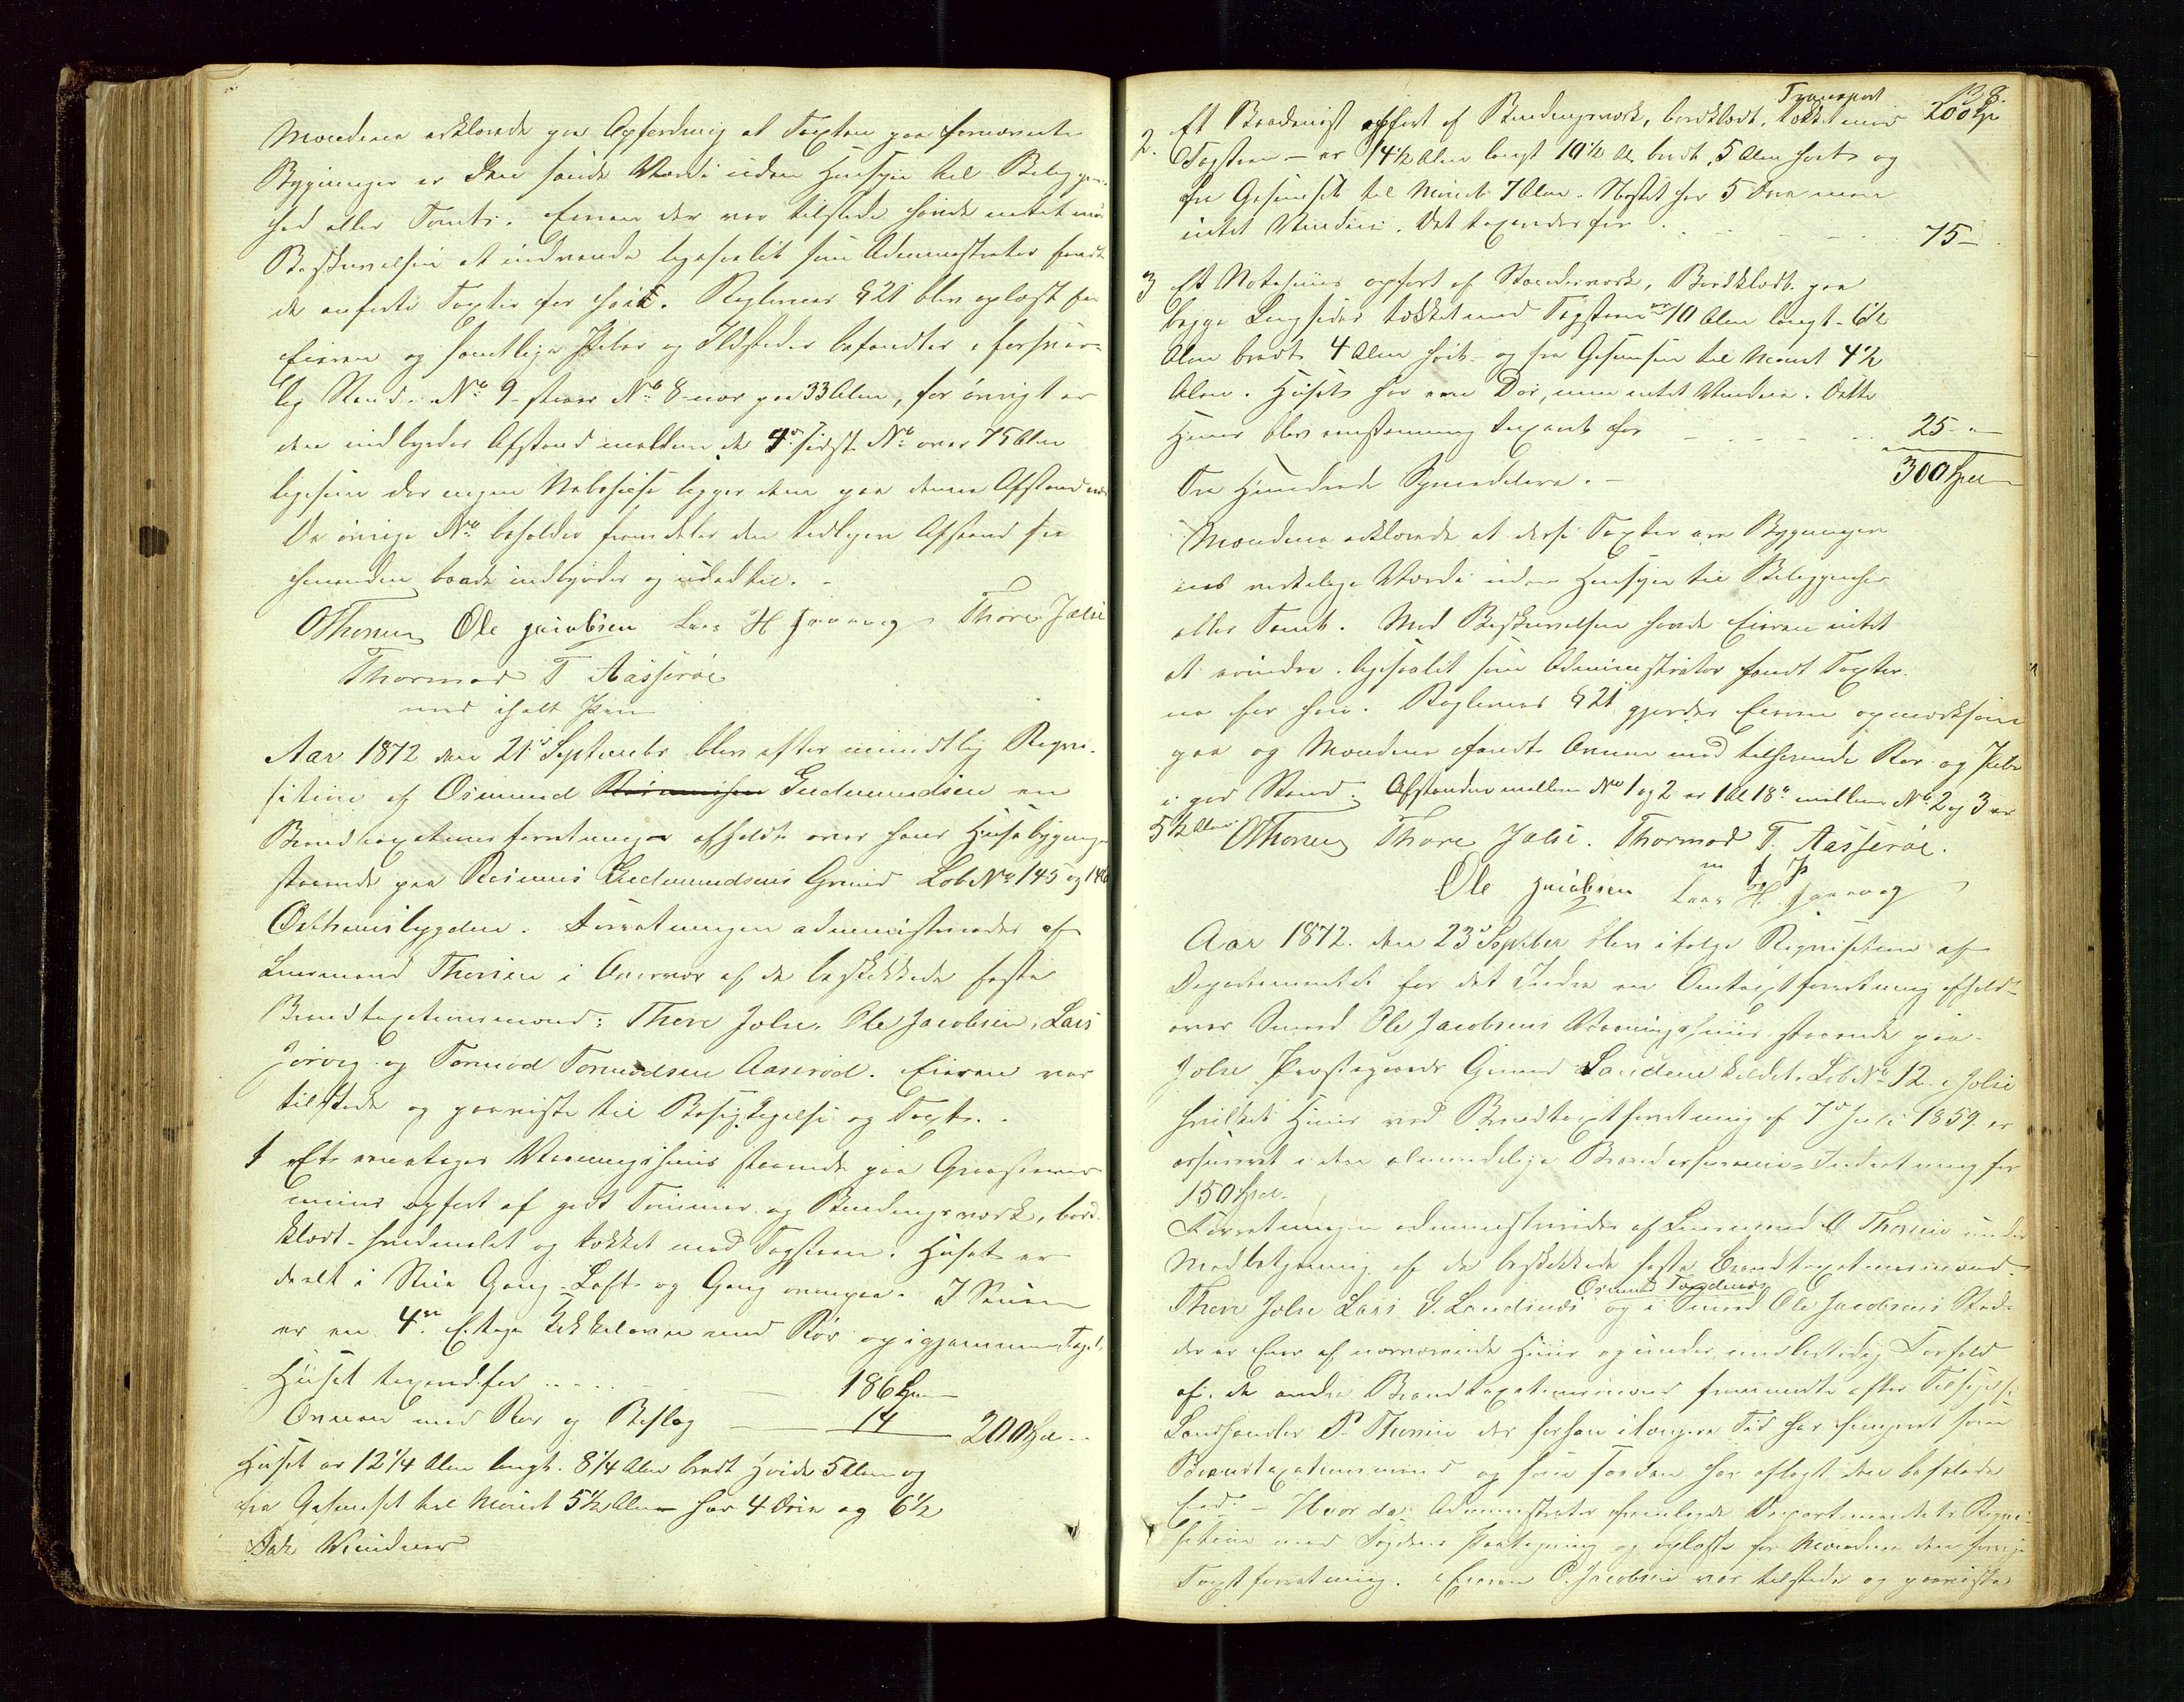 Mændene erklærede paa Opfordring at Taxten paa fornævnte
Bygninger er den sande Værdi uden Hensyn til Beliggen-
hed eller Tomt. Eieren der var tilstede havde intet mod
Beskrivelsen at indvende ligesaalidt som Administrator fandt
de anførte Taxter for høie. Reglernes § 21 blev oplæst for
Eieren og samtlige Piber og Ildsteder befandtes i forsvar-
lig Stand. No 9 staaer No 8 nær paa 33 Alen, for øvrigt er
den indbyrdes Afstand mellem de 4re sidste No over 75 Alen
ligesom der ingen Nabohuse ligger dem paa denne Afstand nær
De øvrige No beholder fremdeles den tidligere Afstand fra
hinanden baade indbyrdes og udadtil. -
OThorsen Ole Jacobsen Lars H Jørvig Thore Jelse
Thormod T Aasserøe
med iholdt Pen
Aar 1872 den 21de September blev efter mundtlig Reqvi-
sition af Osmund Rasmussen Gudmundsen en
Brandtaxationsforretning afholdt over hans Husebygninger
staaende paa Rasmus Gudmundsens Grund Løb No 145 og 146
Østhusbygden. Forretningen administreredes af
Lensmand Thorsen i Overvær af de beskikkede faste
Brandtaxationsmænd: Thore Jelse, Ole Jacobsen, Lars
Jørvig og Tormod Tormodsen Aaserød. Eieren var
tilstede og paaviste til Besigtigelse og Taxt. -
1 Et eenetages Vaaningshuus staaende paa Graasteens-
muur opført af godt Tømmer og Bindingsværk, bord-
klædt - hvidmalet og tækket med Tagsteen. Huset er
deelt i Stue Gang - Loft og Gang ovenpaa. I Stuen
er en 4re Etages Kakkelovn med Rør op igjennem Taget.
Huset taxeret for .. . . . 186 Spd
Ovnen med Rør og Beslag 14 200 Spd ..
Huset er 12 1/4 Alen langt. 8 1/4 Alen bredt Høide 5 Alen og
fra Gesimset til Mønet 5 1/2 Alen har 4 Døre og 6 1/2
Fag Vinduer
138.
Transport 200 Spd
2. Et Baadenøst opført af Bindingsværk, bordklædt, tækket med
Tagsteen - er 14 1/2 Alen langt 10 1/2 Al bredt, 5 Alen høit og
fra Gesimset til Mønet 7 Alen. Nøstet har 5 Døre men
intet Vindue. Det taxeredes for . . . - - - 75 -
3 Et Notehuus opført af Stændeværk, Bordklædt paa
begge Langsider tækket med Tagsteen er 10 Alen langt - 6 1/2
Alen bredt 4 Alen høit - og fra Gesimsen til Mønet 4 1/2
Alen. Huset har een Dør, men intet Vindue. Dette
Huus blev eenstemmig taxeret for - . - . - . . 25 "
Tre Hundrede Speciedaler. - 300 Spd
Mændene erklærede at disse Taxter ere Bygninger
nes virkelige Værdi uden Hensyn til Beliggenhed
eller Tomt. Mod Beskrivelsen havde Eieren intet
at erindre. ligesaalidt som Administrator fandt Taxter
ne for høie. Reglernes § 21 gjordes Eieren opmærksom
paa og Mændene fandt Ovnen med tilhørende Rør og Pibe
i god Stand. Afstanden mellem No 1 og 2 er 1 Al 18" mellem No 2 og 3 er
5 1/2 Alen OThorsen Thore Jelse. Thormod T. Aasserøe.
m i P
Ole Jacobsen Lars H. Jørvig
Aar 1872. den 23de Septber blev ifølge Reqvisition af
Departementet for det Indre en Omtaxtforretning afholdt
over Smed Ole Jacobsens Vaaningshuus staaende paa
Jelse Præstegaards Grund Sandene kaldet. Løb No 12 i Jelse
hvilket Huus ved Brandtaxtforretning af 7de Juli 1859 er
assureret i den almindelige Brandassurance-Indretning for
150 Spd.
Forretningen administreredes af Lensmand O Thorsen under
Medbetjening af de beskikkede faste Brandtaxationsmænd
Thore Jelse Lars G. Landsnæs Osmund Tendenæs og i Smed Ole Jacobsens Sted
der er Eier af nærværende Huus og under midlertidig Forfald
af de andre Brandtaxationsmænd fremmødte efter Tilsigelse
Landhandler P. Thorsen der forhen i længere Tid har fungeret som
Brandtaxationsmand og som saadan har aflagt den befalede
Eed. - Hvor da Administrator fremlagde Departementets Reqvi-
sition med Fogdens Paategning og oplæste for Mændene den forrige
Taxtforretning. Eieren O. Jacobsen var tilstede og paaviste